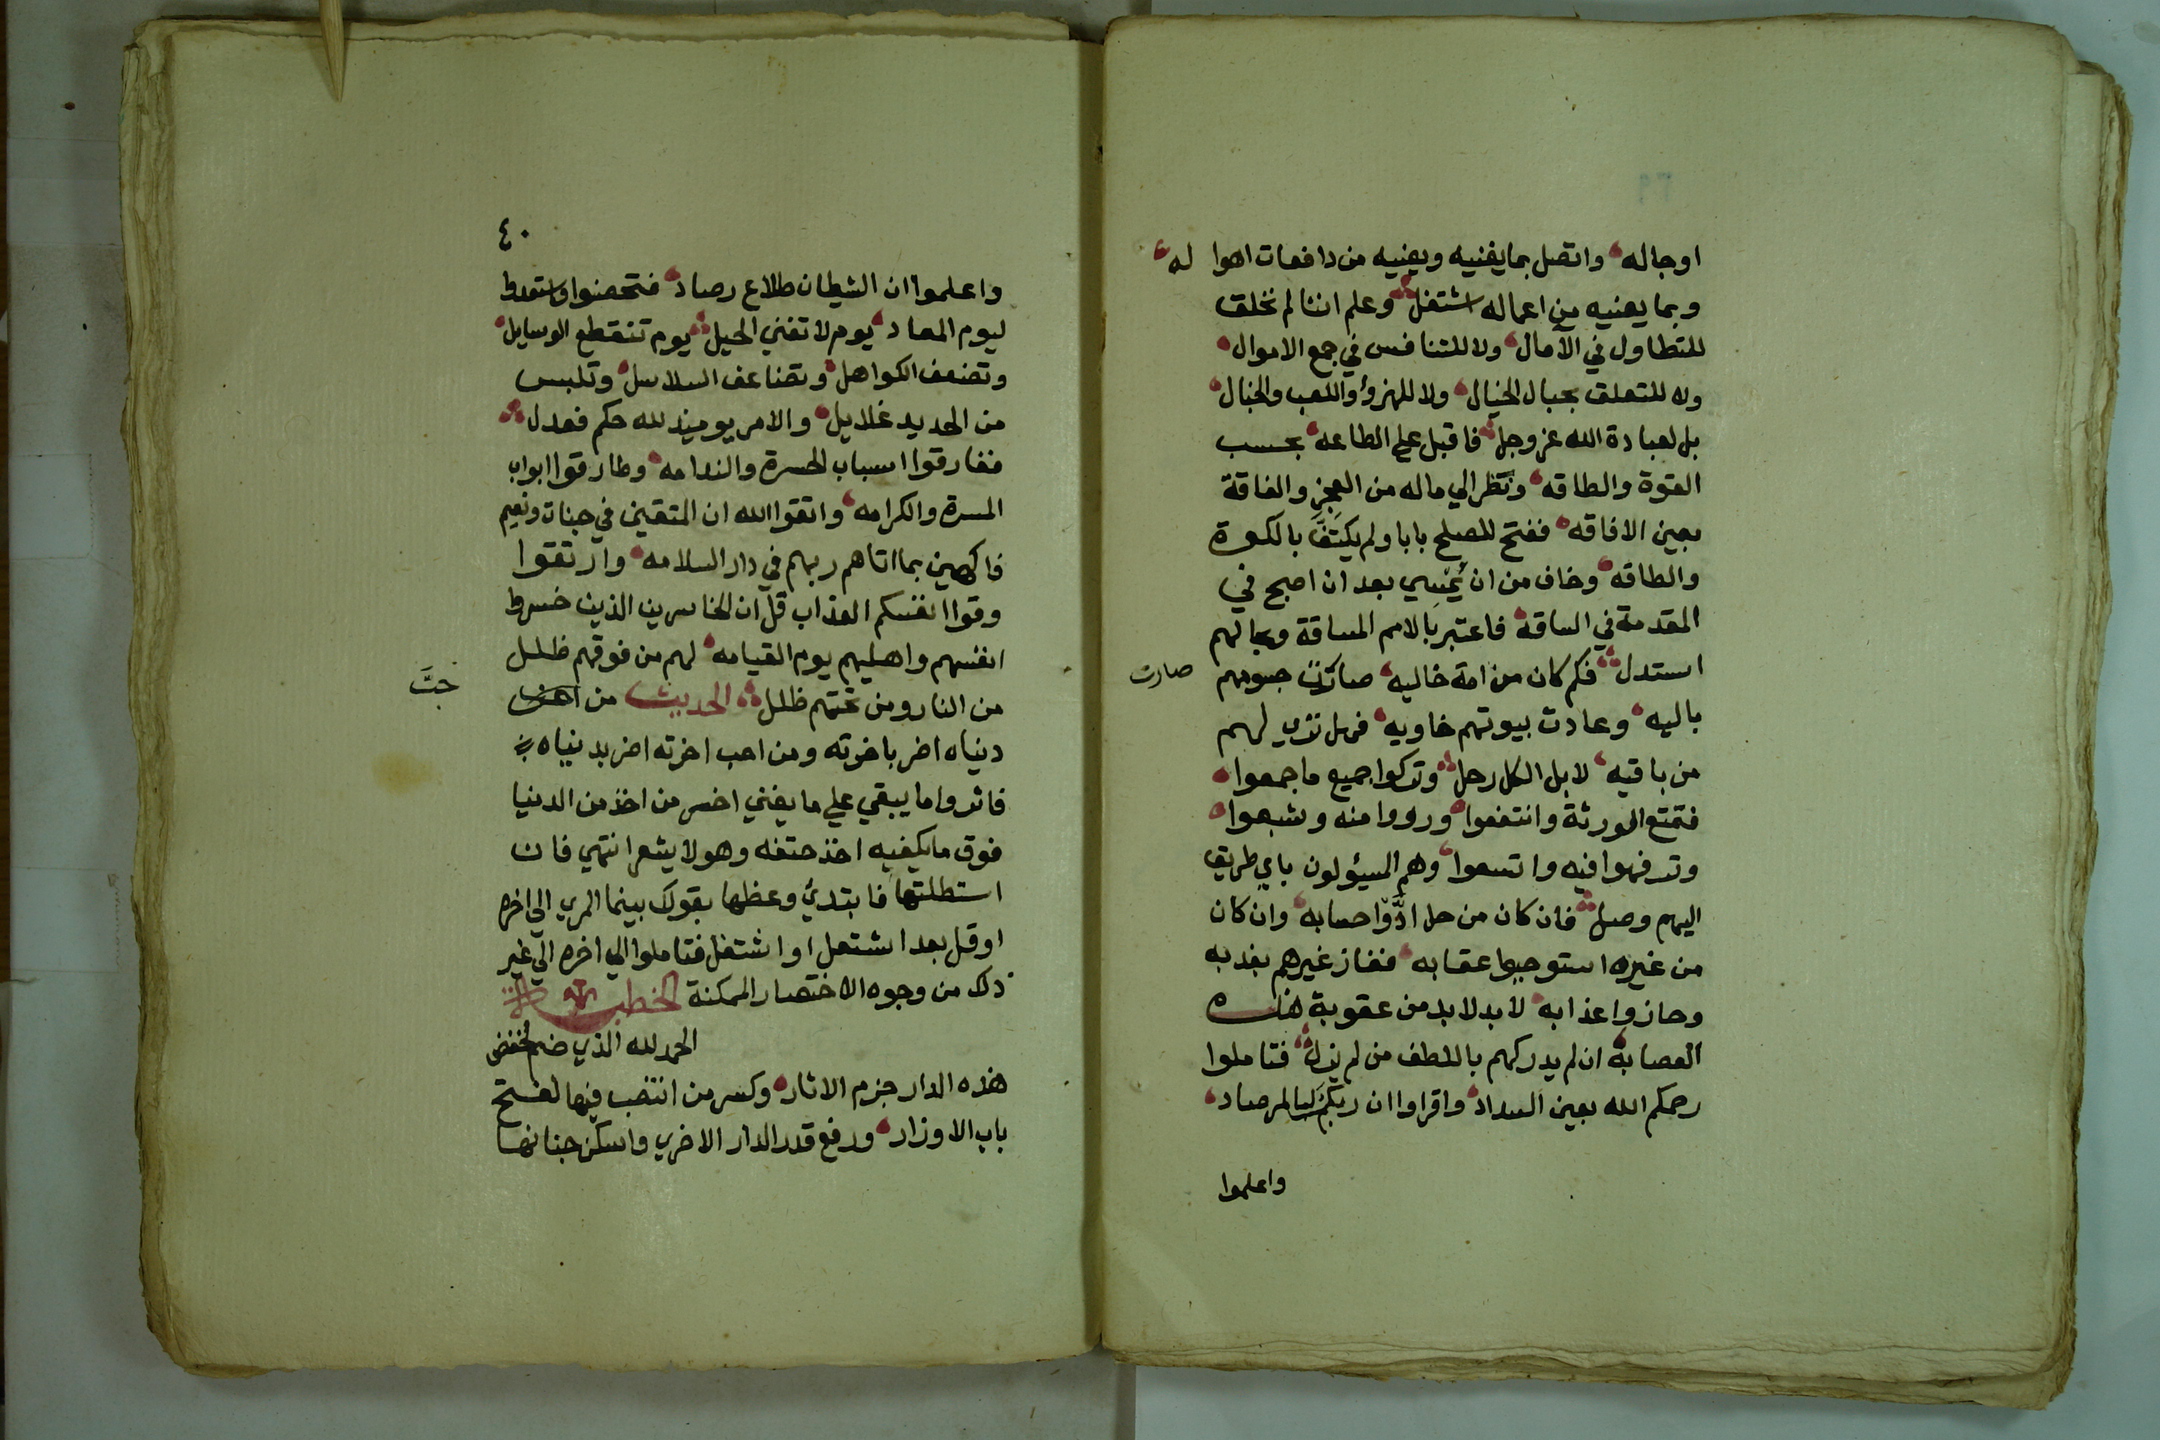 اوجاله واتصل بما يغنيه ويعنيه من دافعات اهوا له
وبما يعنيه من اعماله اشتغل وعلم اننا لم نخلق
للتطاول في الآمال ولا للتنافس في جمع الاموال
ولا للتعلق بحبال الخيال ولا للهزؤ واللعب والخبال
بل لعبادة الله عز وجل فاقبل علي الطاعه بحسب
القوة والطاقه ونظر الي ماله من العجز والفاقة
بعين الافاقه ففتح للصلح بابا ولم يكتف بالكوة
والطاقه وخاف من ان يُمْسِي بعد ان اصبح في
المقدمة في الساقه فاعتبر بالامم المساقة وبحالهم
استدل فكم كان من امة خاليه صارت جسومهم
صارت
باليه وعادت بيوتهم خاويه فهل تري لهم
من باقيه لا بل الكل رحل وتركوا جميع ما جمعوا
فتمتع الورثة وانتفعوا ورووا منه وشبعوا
وترفهوا فيه واتسعوا وهم المسؤلون باي طريق
اليهم وصل فان كان من حل ادَّوْا حسابه وان كان
من غيره استوجبوا عقابه ففاز غيرهم بعذبه
وحازوا عذابه لابد لابد من عقوبة هذه
العصابة ان لم يدركهم باللطف من لم يزل فتاملوا
رحمكم الله بعين السداد واقراوا ان ربكم لبالمرصاد
واعلموا
٤٠
واعلموا ان الشيطان طلاع رصاد فتحصنوا واستعدوا
ليوم المعاد يوم لا تغني الحيل يوم تنقطع الوسايل
وتضعف الكواهل وتضاعف السلاسل وتلبس
من الحديد غلايل والامر يوميذ لله حكم فعدل
ففارقوا اسباب الحسرة والندامه وطارقوا ابواب
المسرة والكرامه واتقوا الله ان المتقين في جنات ونعيم
فاكهين بما اتاهم ربهم في دار السلامه وارتقوا
وقوا انفسكم العذاب قل ان الخاسرين الذين خسروا
انفسهم واهليهم يوم القيامه لهم من فوقهم ظلل
من النار ومن تحتهم ظلل الحديث من احب
دنياه اضر باخرته ومن احب اخرته اضر بدنياه
فاثروا ما يبقي علي ما يفني اخس من اخذ من الدنيا
فوق ما يكفيه اخذ حتفه وهو لا يشعر انتهي فان
استطلتها فابتدئ وعظها بقولك بينما المري الي اخره
او قل بعد اشتعل او اشتغل فتاملوا الي اخره الي غير
ذلك من وجوه الاختصار الممكنة الخطبة
الحمد لله الذي ضم لخفض
هذه الدار جزم الاثار وكسر من انتصب فيها لفتح
باب الاوزار ورفع قدر الدار الاخري واسكن جنانها